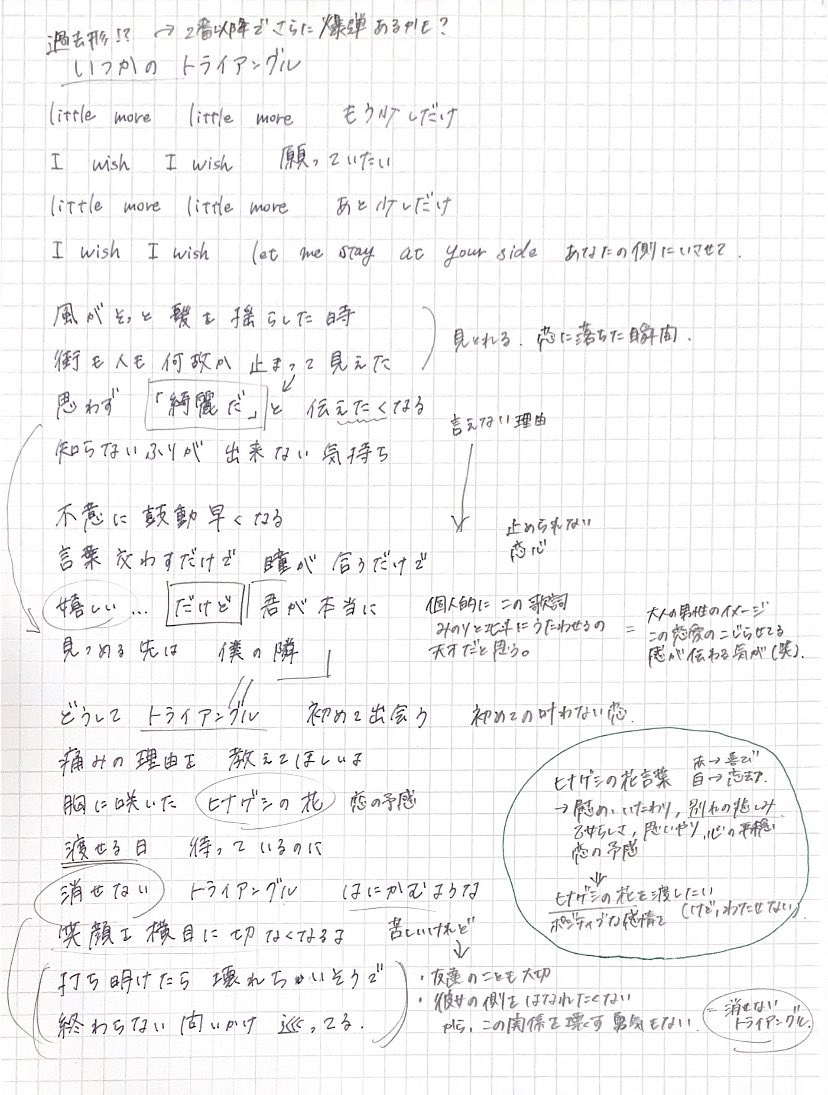 過去形!? → 2番以降でさらに爆弾あるかも?
いつかの トライアングル
little more little more もう少しだけ
I wish I wish 願っていたい
little more little more あと少しだけ
I wish I wish let me stay at your side あなたの側にいさせて.
風がそっと 髪を 揺らした時
街も人も 何故か 止まって 見えた
見とれる. 恋に落ちた瞬間.
思わず 「綺麗だ」と 伝えたくなる
言えない理由
知らないふりが 出来ない 気持ち
不意に 鼓動 早くなる
止められない
恋心
言葉 交わすだけで 瞳が 合うだけで
嬉しい… だけど 君が 本当に
見つめる 先は 僕の 隣
個人的に この 歌詞
みのりと北斗にうたわせるの
天才だと思う。
= 大人の男性のイメージ
この恋愛のこじらせてる
感が伝わる気が(笑).
どうして トライアングル 初めて 出会う 初めての叶わない恋.
痛みの 理由を 教えてほしいよ
胸に 咲いた ヒナゲシの 花 恋の予感
渡せる 日 待って いるのに
消せない トライアングル はにかむような
笑顔を 横目に 切なくなるよ 苦しいけれど
打ち明けたら 壊れちゃいそうで
終わらない 問いかけ 巡ってる.
ヒナゲシの花言葉 赤→喜び
白→忘却
→ 慰め、いたわり, 別れの悲しみ
乙女らしさ, 思いやり, 心の平穏
恋の予感
⇓
ヒナゲシの花を渡したい
ポジティブな感情を (けど, わたせない)
・友達のことも大切
・彼女の側をはなれたくない
から, この関係を壊す 勇気もない.
= 消せない
トライアングル.